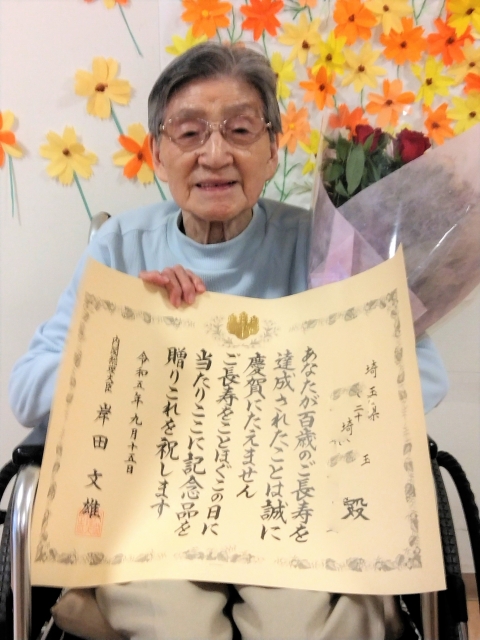 埼玉県
埼玉
殿
あなたが百歳のご長寿を
達成されたことは誠に
慶賀にたえません
ご長寿をことほぐこの日に
当たりここに記念品を
贈りこれを祝します
令和五年九月十五日
内閣総理大臣 岸田文雄